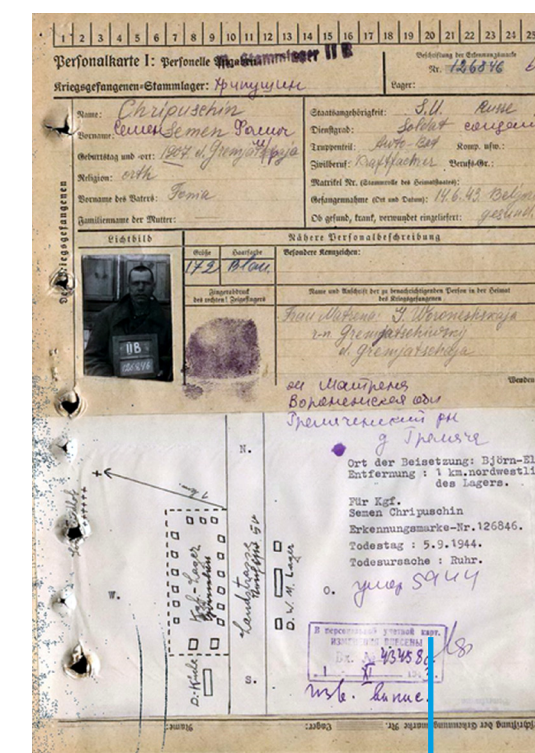 1 2 3 4 5 6 7 8 9 10 11 12 13 14 15 16 17 18 19 20 21 22 23 24 25
Personalkarte I: Personelle Angaben
Stammlager II B
Kriegsgefangenen-Stammlager: Хрипушин
Beschriftung der Erkennungsmarke
Nr. 126846
Lager:
Des Kriegsgefangenen
Name: Chripuschin
Vorname: Семен Semen Фомич
Geburtstag und -ort: 1907 d. Gremjatschaja
Religion: orth
Vorname des Vaters: Foma
Familienname der Mutter:
Staatsangehörigkeit: S.U. Russe
Dienstgrad: Soldat
Truppenteil: Auto-Bat Komp. usw.:
Zivilberuf: Kraftfahrer Berufs-Gr.:
Matrikel Nr. (Stammrolle des Heimatstaates):
Gefangennahme (Ort und Datum): 14.6.43
Ob gesund, krank, verwundet eingeliefert:
Lichtbild
Nähere Personalbeschreibung
Größe
Haarfarbe
Besondere Kennzeichen:
172
Fingerabdruck
des rechten! Zeigefingers
Name und Anschrift der zu benachrichtigenden Person in der Heimat
des Kriegsgefangenen
Frau Matrena J. Woroneshskaja
r-n Gremjatschiwskj
d. Gremjatschaja
II B
126846
Wenden
Матрена
Воронежская обл
Гремяченский рн
д Гремяче
Ort der Beisetzung: Björn-
Entfernung : 1 km.nordwestli
des Lagers.
Für Kgf.
Semen Chripuschin
Erkennungsmarke-Nr.126846.
Todestag : 5.9.1944.
Todesursache : Ruhr.
умер 5 9 44
N.
W.
O.
S.
Kgf.-Lager
Landstrasse
D.W.M. Lager
В персональную учетную карт.
ИЗМЕНЕНИЯ ВНЕСЕНЫ
Вх. №
1 XI
Изв. выпис.
Name:
Lager: